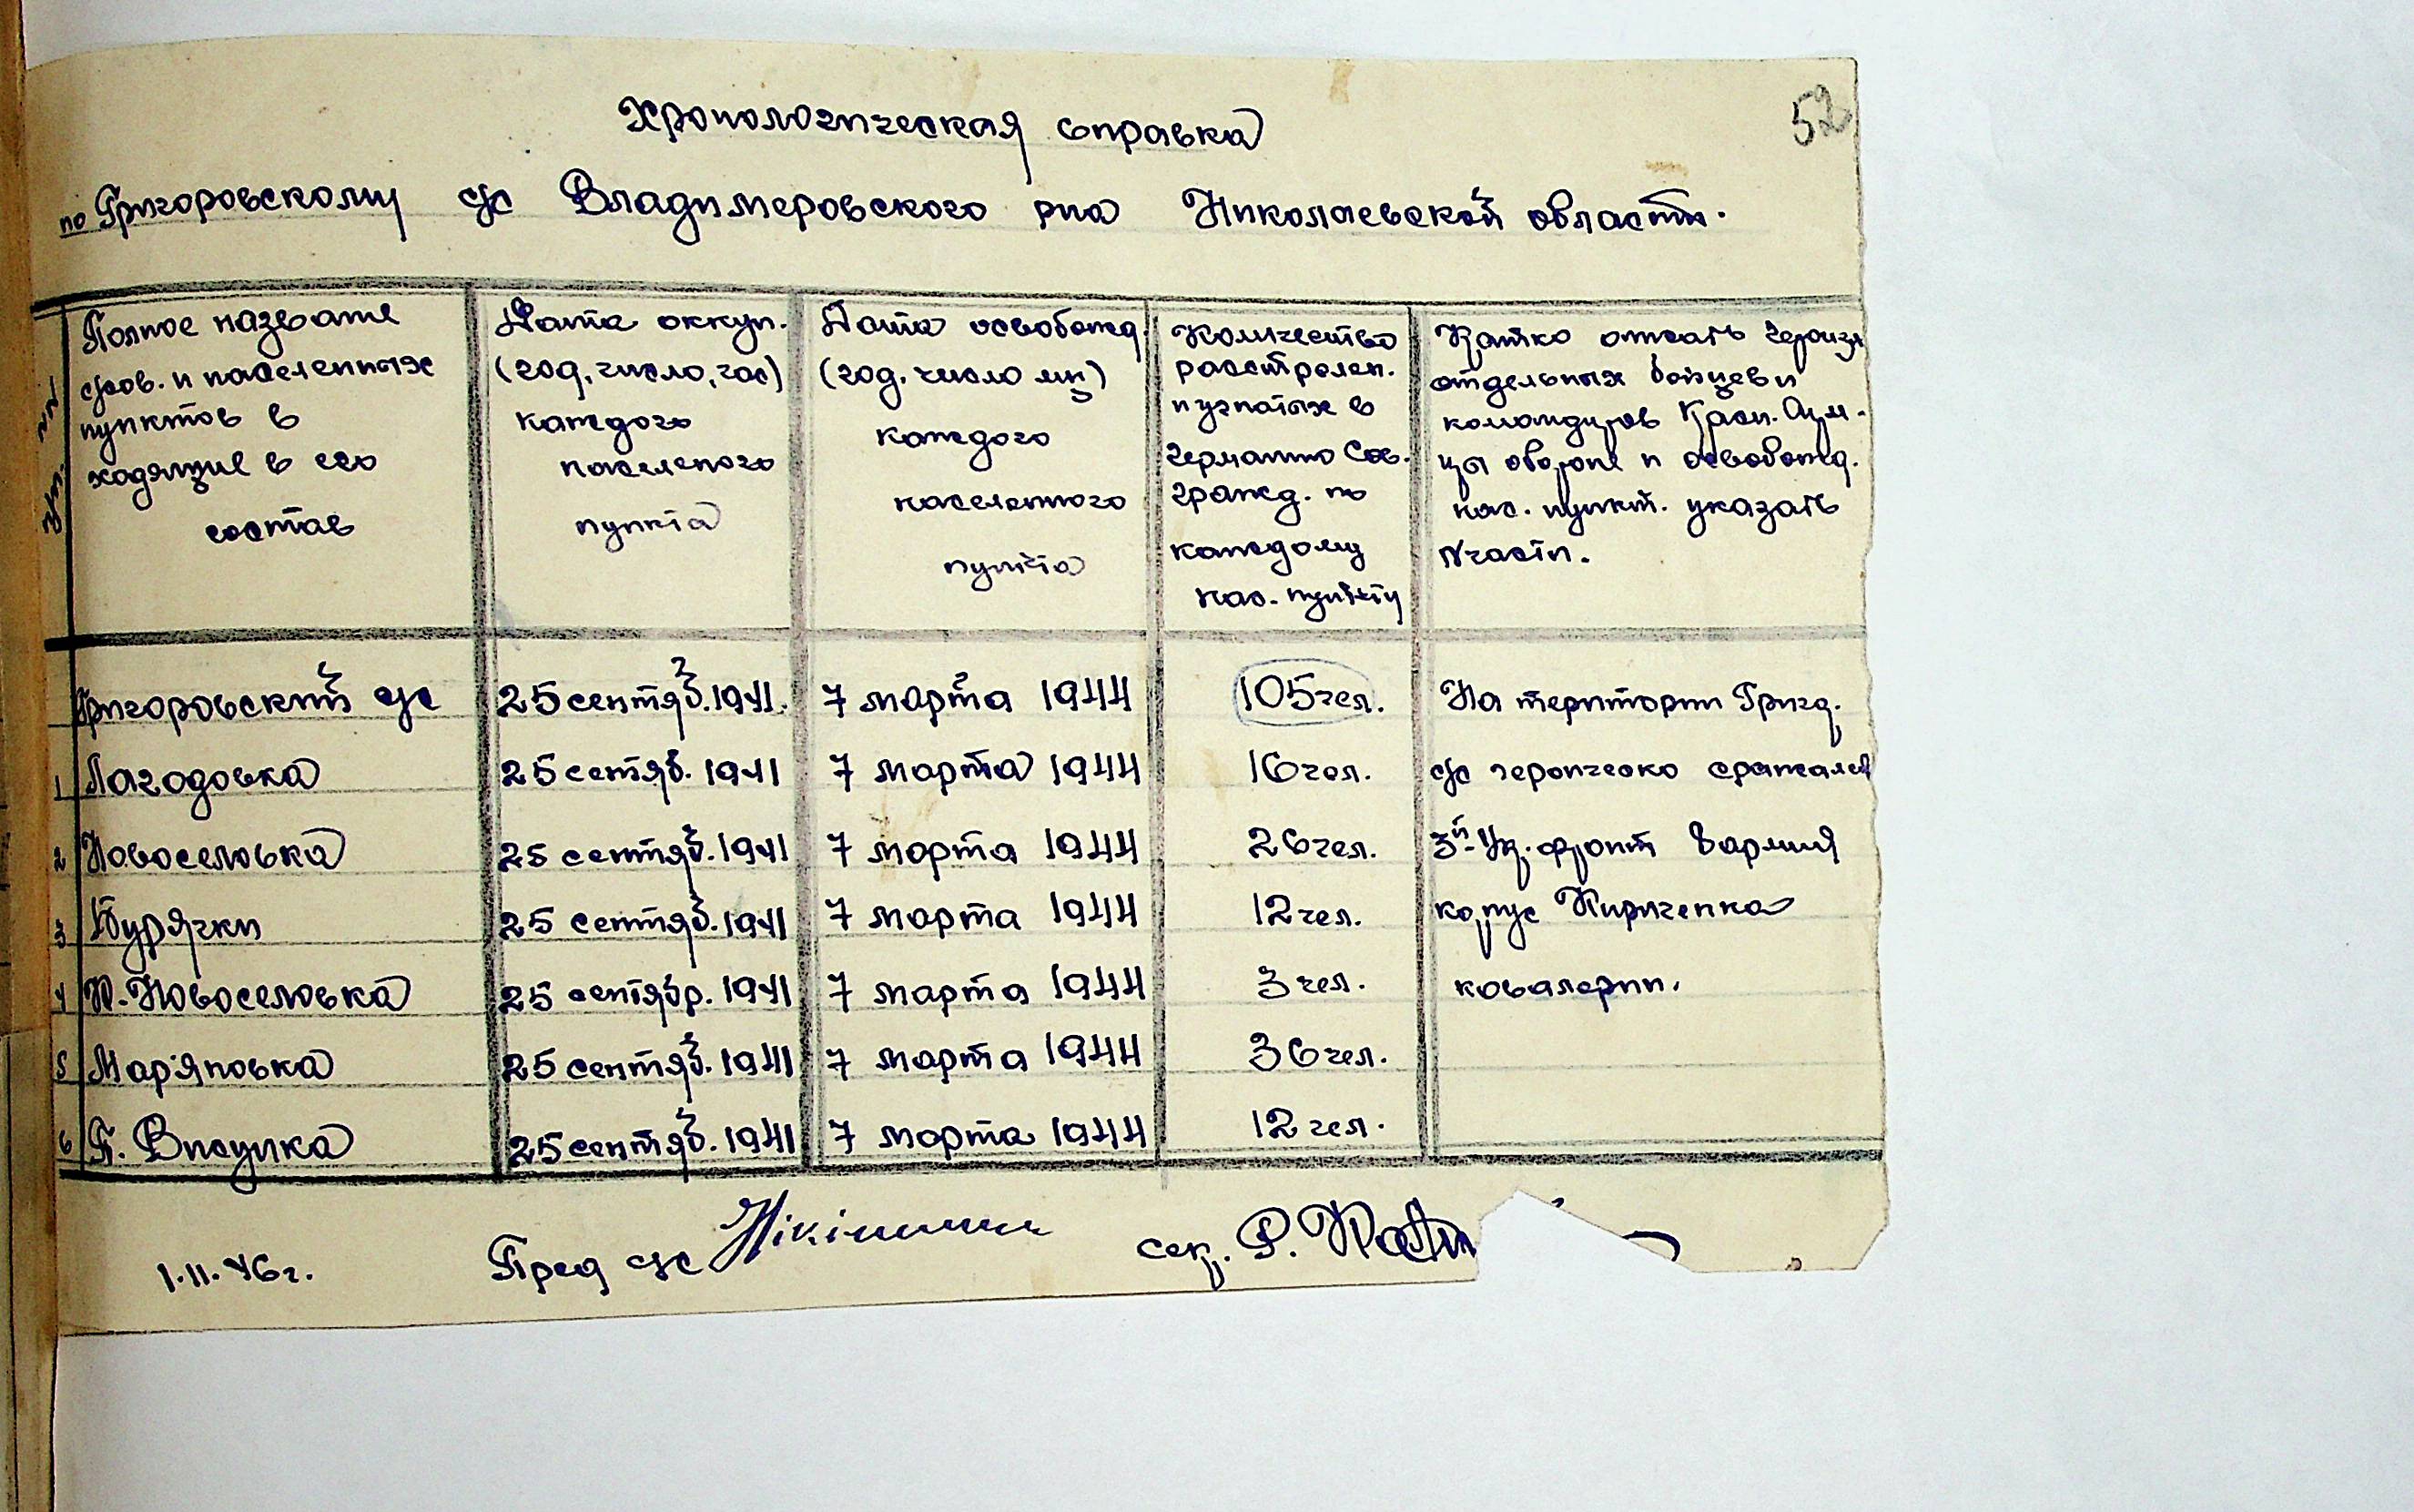 52
Хронологическая справка
по Григоровскому с/с Владимеровского р-на Николаевской области.
№№
Полное название
с/сов. и населенных
пунктов в
ходящие в его
состав
Дата оккуп.
(год, число, час)
каждого
населеного
пункта
Дата освобожд.
(год, число мц)
каждого
населенного
пункта
Количество
расстрелен.
и угнатых в
германию Сов.
гражд. по
каждому
нас. пункту
Кратко описать героизм
отдельных бойцев и
командиров Красн. Арм.
цы обороне и освобожд.
нас. пункт. указать
№ части.
Григоровский с/с 25 сентяб. 1941. 7 марта 1944 105 чел. На територии Григ.
1 Лагодовка 25 сентяб. 1941 7 марта 1944 16 чел. с/с героическо сражалсь
2 Новоселовка 25 сентяб. 1941 7 марта 1944 26 чел. 3й Ук. фронт 8 армия
3 Бурячки 25 сентяб. 1941 7 марта 1944 12 чел. корпус Кириченка
4 К. Новоселовка 25 сентябр. 1941 7 марта 1944 3 чел. ковалерии.
5 Мар'яновка 25 сентяб. 1941 7 марта 1944 36 чел.
6 Г. Висунка 25 сентяб. 1941 7 марта 1944 12 чел.
1.II.46г. Пред с/с сек. Р.